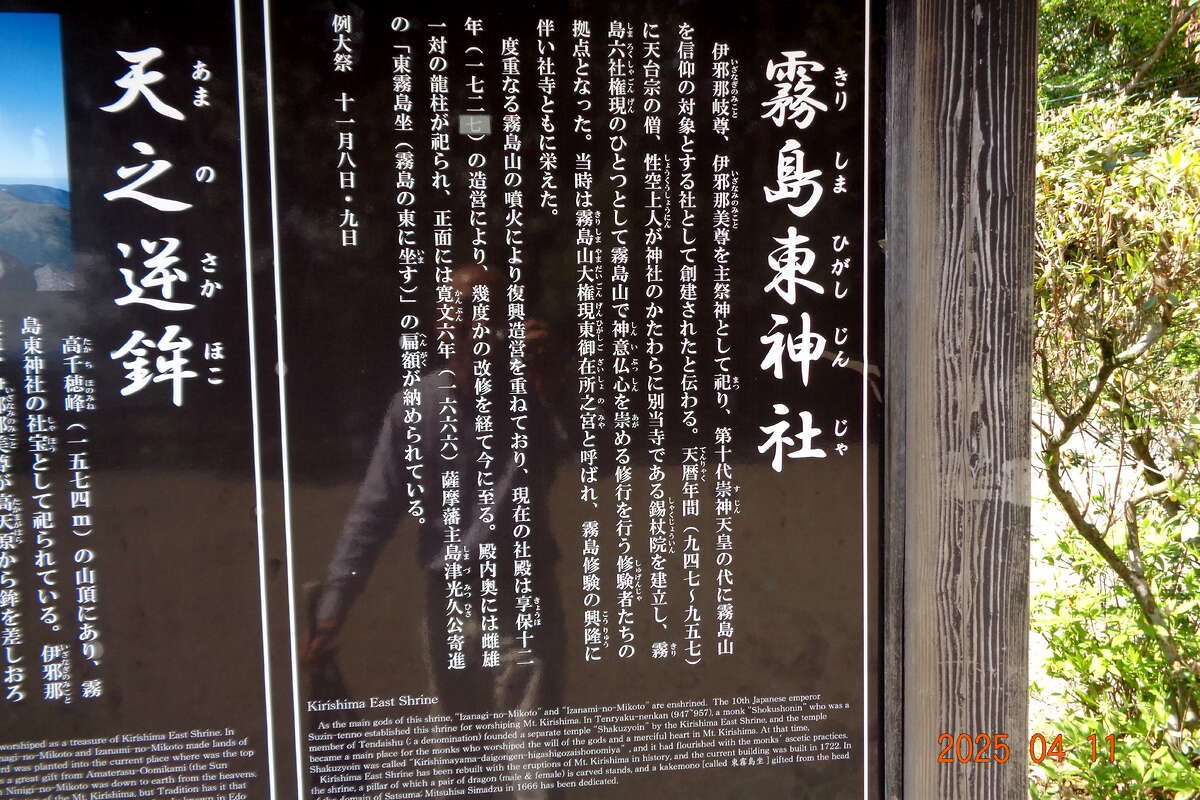 きり しま ひがし じん じゃ
霧島東神社
いざなぎのみこと いざなみのみこと まつ すじん
伊邪那岐尊、伊邪那美尊を主祭神として祀り、第十代崇神天皇の代に霧島山
てんりゃく
を信仰の対象とする社として創建されたと伝わる。天暦年間（九四七～九五七）
しょうくうしょうにん しゃくじょういん きり
に天台宗の僧、性空上人が神社のかたわらに別当寺である錫杖院を建立し、霧
しまろくしゃごんげん しんい ぶっしん あが しゅげんじゃ
島六社権現のひとつとして霧島山で神意仏心を崇める修行を行う修験者たちの
きりしまやまだいごんげんひがしございしょのみや こうりゅう
拠点となった。当時は霧島山大権現東御在所之宮と呼ばれ、霧島修験の興隆に
伴い社寺ともに栄えた。
きょうほ
度重なる霧島山の噴火により復興造営を重ねており、現在の社殿は享保十二
年（一七二七）の造営により、幾度かの改修を経て今に至る。殿内奥には雌雄
かんぶん しまづ みつひさ
一対の龍柱が祀られ、正面には寛文六年（一六六六）薩摩藩主島津光久公寄進
いま へんがく
の「東霧島坐（霧島の東に坐す）」の扁額が納められている。
例大祭 十一月八日・九日
Kirishima East Shrine
As the main gods of this shrine, "Izanagi-no-Mikoto" and "Izanami-no-Mikoto" are enshrined. The 10th Japanese emperor
Suzin-tenno established this shrine for worshiping Mt. Kirishima. In Tenryaku-nenkan (947~957), a monk "Shokushonin" who was a
member of Tendaishu ( a denomination) founded a separate temple "Shakuzyoin" by the Kirishima East Shrine, and the temple
became a main place for the monks who worshiped the will of the gods and a merciful heart in Mt. Kirishima. At that time,
Shakuzyoin was called "Kirishinayama-daigongen-higashigozaishonomiya" , and it had flourished with the monks' ascetic practices.
Kirishima East Shrine has been rebuilt with the eruptions of Mt. Kirishima in history, and the current building was built in 1722. In
the shrine, a pillar of which a pair of dragon (male & female) is carved stands, and a kakemono [called 東霧島坐 ] gifted from the head
domain of Satsuma: Mitsuhisa Simadzu in 1666 has been dedicated.
あま の さか ほこ
天之逆鉾
たかちほのみね
高千穂峰（一五七四m）の山頂にあり、霧
しゃほう いざなぎのみこと
島東神社の社宝として祀られている。伊邪那
いざなみのみこと たかまがはら
邪那美尊が高天原から鉾を差しおろ
worshiped as a treasure of Kirishima East Shrine. In
nagi-no-Mikoto and Izanami-no-Mikoto made lands of
was planted into the current place where was the top
s a great gift from Amaterasu-Oomikami (the Sun
Ninigi-no-Mikoto was down to earth from the heavens.
of the Mt. Kirishima, but Tradition has it that
known in Edo
2025 04 11